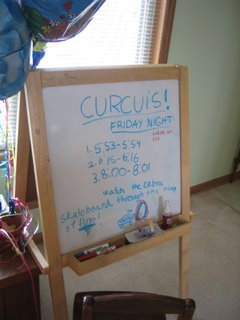 CURCUiS!
FRIDAY NIGHT
1. 5:53-5:54
2. 6:15-6:16
3. 8:00-8:01
watch the Zebra
skateboard through the ring